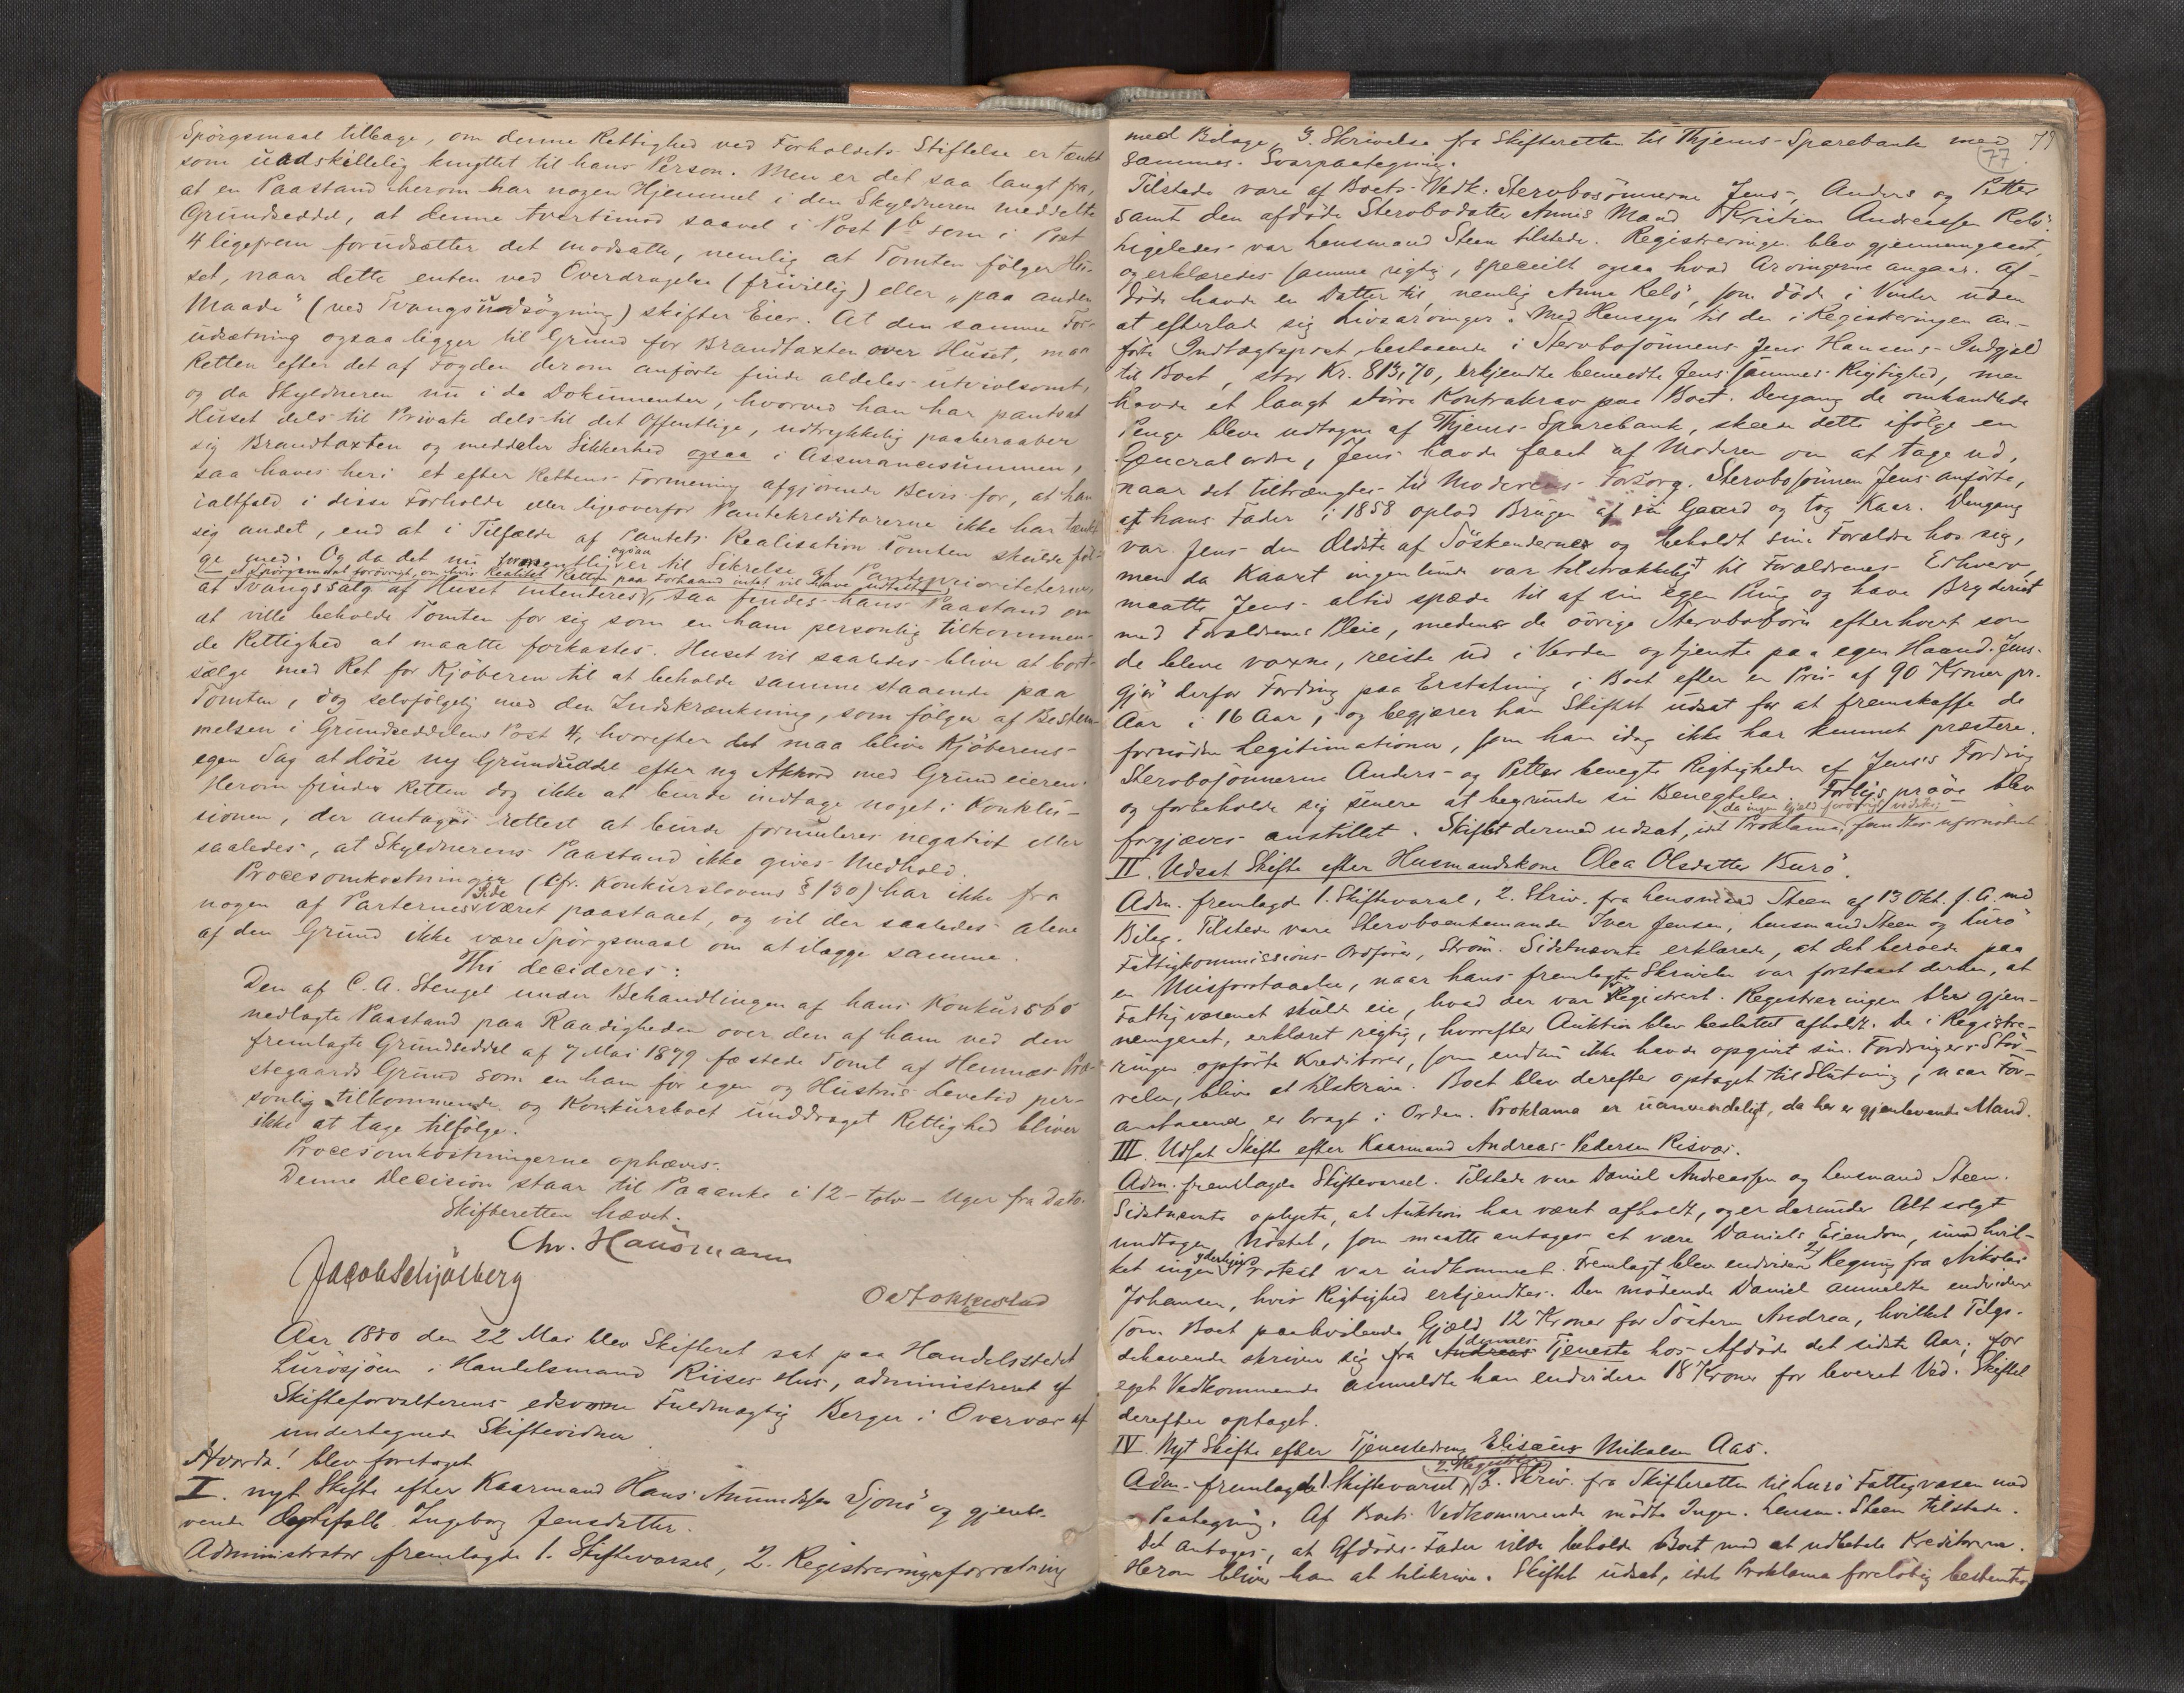 Spörgsmaal tilbage, om denne Rettighed ved Forholdets Stiftelse er tænkt
som uadskillelig knyttet til hans Person. Men er det saa langt fra,
at en Paastand herom har nogen Hjemmel i den Skyldneren meddelte
Grundseddel, at denne tvertimod saavel i Post 1b som i Post
4 ligefrem forudsætter det modsatte, nemlig at Tomten følger Hu-
set, naar dette enten ved Overdragelse (frivillig) eller "paa anden
Maade" (ved Tvangsudsögning) skifter Eier. At den samme For-
udsætning ogsaa ligger til Grund for Brandtaxten over Huset, maa
Retten efter det af Fogden derom anførte finde aldeles utvivlsomt,
og da Skyldneren nu i de Dokumenter, hvorved han har pantsat
Huset dels til Private dels til det Offentlige, udtrykkelig paaberaaber
sig Brandtaxten og meddeler Sikkerhed ogsaa i Assurancesummen,
saa haves heri et efter Rettens Formening afgjörende Bevis for, at han
ialtfald i disse Forholde eller ligeoverfor Pantekreditorerne ikke har tænkt
sig andet, end at i Tilfælde af Pantets Realisation Tomten skulde föl-
ge med. Og da det nu væsentlig ogsaa er til Sikrelse af Panteprioriteterne,
– et Spörgsmaal forövrigt, om hvis Realitet Retten paa Forhaand intet vil have udtalt –
at Tvangssalg af Huset intenderes, saa findes hans Paastand om
at ville beholde Tomten for sig som en ham personlig tilkommen-
de Rettighed at maatte forkastes. Huset vil saaledes blive at bort-
sælge med Ret for Kjöberen til at beholde samme staaende paa
Tomten, dog selvfölgelig med den Indskrænkning, som fölger af Bestem-
melsen i Grundseddelens Post 4, hvorefter det maa blive Kjöberens
egen Sag at löse ny Grundseddel efter ny Akkord med Grundeieren.
Herom finder Retten dog ikke at burde indtage noget i Konklu-
sionen, der antages rettest at burde formuleres negativt eller
saaledes, at Skyldnerens Paastand ikke gives Medhold.
Procesomkostninger (Cfr. Konkurslovens § 130) har ikke fra
nogen af Parternes Side været paastaaet, og vil der saaledes alene
af den Grund ikke være Spörgsmaal om at ilægge samme.
Thi decideres:
Den af C. A. Stengel under Behandlingen af hans Konkursbo
nedlagte Paastand paa Raadigheden over den af ham ved den
fremlagte Grundseddel af 7 Mai 1879 fæstede Tomt af Hemnæs Præ-
stegaards Grund som en ham for egen og Hustrus Levetid per-
sonlig tilkommende og Konkursboet unddraget Rettighed bliver
ikke at tage tilfölge.
Procesomkostningerne ophæves.
Denne Decision staar til Paaanke i 12 – tolv – Uger fra Dato.
Skifteretten hævet.
Chr. Hausmann
Jacob Schjölberg
Aar 1880 den 22 Mai blev Skifteret sat paa Handelsstedet
Luröesjöen i Handelsmand Riises Hus, administreret af
Skifteforvalterens edsvorne Fuldmægtig Berger i Overvær af
undertegnede Skiftevidner
Hvorda! blev foretaget
I. nyt Skifte efter Kaarmand Hans Amundsen Sjonö og gjenle-
vende Ingeborg Jensdatter.
Administrator fremlagde 1. Skiftevarsel, 2. Registreringsforretning
med Bilage, 3. Skrivelse fra Skifteretten til Thjems-Sparebank med 79
77
sammes Svarpaategning.
Tilstede vare af Boets Vedk. Stervbosönnerne Jens, Anders og Petter
samt den afdöde Stervbodatter Annes Mand Kristian Andreassen Relö.
Ligeledes var Lensmand Steen tilstede. Registreringen blev gjennemgaaet
og erklæredes samme rigtig, specielt ogsaa hvad Arvingerne angaar. Af-
döde havde en Datter til, nemlig Anne Relö, som döde i Vinter uden
at efterlade sig Livsarvinger. Med Hensyn til den i Registreringen an-
förte Indtægtspost bestaaende i Stervbosönnens Jens Hansens Indgjæld
til Boet, stor Kr. 813,70, erkjendte benævnte Jens sammes Rigtighed, men
havde et langt större Kontrakrav paa Boet. Dengang de omhandlede
Penge bleve udtagne af Thjems-Sparebank, skede dette ifölge en
Generalordre, Jens havde faaet af Moderen om at tage ud,
naar det tiltrængtes til Moderens Forsorg. Stervbosönnen Jens anförte,
at hans Fader i 1858 oplod Brugen af sin Gaard og tog Kaar. Dengang
var Jens den Ældste af Söskenderne og beholdt sine Forældre hos sig,
men da Kaaret ingenlunde var tilstrækkeligt til Forældrenes Erhverv,
maatte Jens altid spæde til af sin egen Pung og have Bryderiet
med Forældrenes Pleie, medens de övrige Stervboböern efterhvert som
de bleve voxne, reiste ud i Verden og tjente paa egen Haand. Jens
gjör derfor Fordring paa Erstatning i Boet efter en Pris af 90 Kroner pr.
Aar i 16 Aar, og begjærer han Skiftet udsat for at fremskaffe de
fornödne Legitimationer, som han idag ikke har kunnet præstere.
Stervbosönnerne Anders og Petter benegte Rigtigheden af Jens's Fordring
og forbeholde sig senere at begrunde sin Benegtelse. Forligspröve blev
da ingen Gjæld forövrigt vides,
forgjæves anstillet. Skiftet dermed udsat, idet Proklama fandtes ufornödent
II. Udsat Skifte efter Husmandskone Olea Olsdatter Kurö.
Adm. fremlagde 1. Skiftevarsel, 2. Skriv. fra Lensmand Steen af 13 Okt. f. A. med
Bilag. Tilstede vare Stervboenkemanden Iver Jensen, Lensmand Steen og Lurö
Fattigkommissions Ordförer, Ström. Sidstnævnte erklærede, at det beroede paa
en Misforstaaelse, naar hans fremlagte Skrivelse var forstaaet derhen, at
Fattigvæsenet skulde eie, hvad der var Registreret. Registreringen blev gjen-
nemgaaet, erklæret rigtig, hvorefter Auktion blev besluttet afholdt. De i Registre-
ringen opförte Kreditorer, som endnu ikke havde opgivet sine Fordringers Stör-
relse, blive at tilskrive. Boet blev derefter optaget til Slutning, naar For-
anstaaende er bragt i Orden. Proklama er uanvendeligt, da her er gjenlevende Mand.
III. Udsat Skifte efter Kaarmand Andreas Pedersen Risvær.
Adm. fremlagde Skiftevarsel. Tilstede vare Daniel Andreassen og Lensmand Steen.
Sidstnævnte oplyste, at Auktion har været afholdt, og er derunder Alt solgt
undtagen Nöstet, som maatte antages at være Daniels Eiendom, imod hvil-
ket ingen yderligere Protest var indkommet. Fremlagt blev endvidere 2) Regning fra Nikolai
Johansen, hvis Rigtighed erkjendtes. Den mödende Daniel anmeldte endvidere
som Boet paahvilende Gjæld 12 Kroner for Sösteren Andrea, hvilket Tilgo-
dehavende skriver sig fra dennes Tjeneste hos Afdöde det sidste Aar; for
eget Vedkommende anmeldte han endvidere 18 Kroner for leveret Ved. Skiftet
derefter optaget.
IV. Nyt Skifte efter Tjenestedreng Elisæus Mikalsen Aas.
Adm. fremlagde 1. Skiftevarsel, 3. Skriv. fra Skifteretten til Lurö Fattigvæsen med
Paategning. Af Boets Vedkommende mödte Ingen. Lensm. Steen tilstede.
Det antages, at Afdödes Fader vilde beholde Boet mod at udbetale Kreditorerne.
Herom bliver han at tilskrive. Skiftet udsat, idet Proklama foreløbig